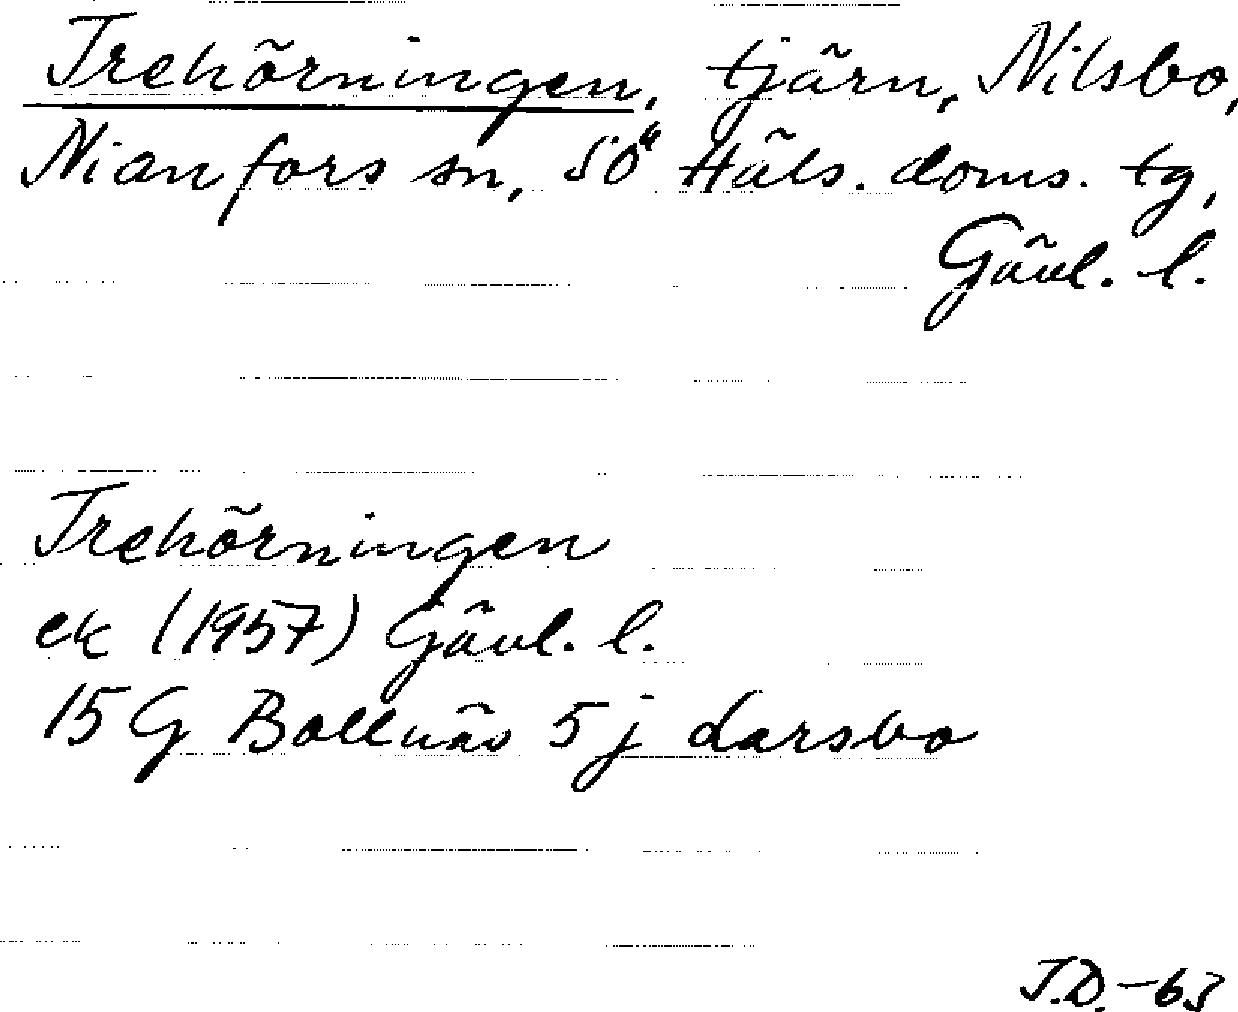 Trehörningen, tjärn, Nilsbo,
Nianfors sn, SÖ Häls. doms. tg,
Gävl. l.
Trehörningen
ek (1957) Gävl. l.
15 G Bollnäs 5 j Larsbo
J.D. -63